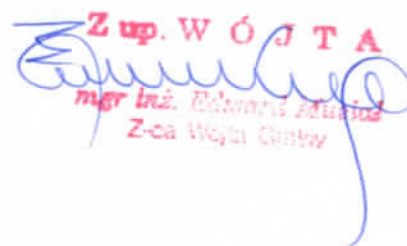 Z up. WÓJTA
mgr inż. Edward
Z-ca Wójta Gminy